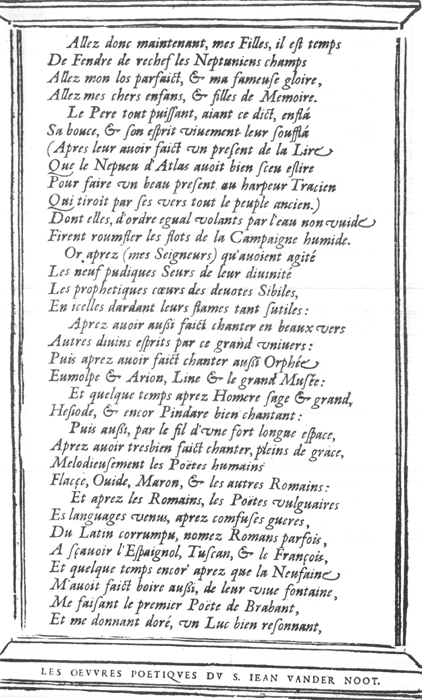 Allez donc maintenant, mes Filles, il eſt temps
De Fendre de rechef les Neptuniens champs
Allez mon los parfaict, & ma fameuſe gloire,
Allez mes chers enfans, & filles de Memoire.
Le Pere tout puiſſant, aiant ce dict, enflá
Sa bouce, & ſon eſprit viuement leur ſoufflá
(Apres leur auoir faict vn preſent de la Lire
Que le Nepueu d'Atlas auoit bien ſceu eſlire
Pour faire vn beau preſent au harpeur Tracien
Qui tiroit par ſes vers tout le peuple ancien.)
Dont elles, d'ordre egual volants par l'eau non vuide
Firent roumfler les flots de la Campaigne humide.
Or aprez (mes Seigneurs) qu'auoient agité
Les neuf pudiques Seurs de leur diuinité
Les prophetiques cœurs des deuotes Sibiles,
En icelles dardant leurs flames tant ſutiles:
Aprez auoir auſsi faict chanter en beaux vers
Autres diuins eſprits par ce grand vniuers:
Puis aprez auoir faict chanter auſsi Orphée
Eumolpe & Arion, Line & le grand Muſée:
Et quelque temps aprez Homere ſage & grand,
Heſiode, & encor Pindare bien chantant:
Puis auſsi, par le fil d'vne fort longue eſpace,
Aprez auoir tresbien faict chanter, pleins de grace,
Melodieuſement les Poëtes humains
Flacçe, Ouide, Maron, & les autres Romains:
Et aprez les Romains, les Poëtes vulguaires
Es languages venus, aprez comfuſes guerres,
Du Latin corrumpu, nomez Romans parfois,
A ſçauoir l'Eſpaignol, Tuſcan, & le François,
Et quelque temps encor' aprez que la Neufaine
M'auoit faict boire auſsi, de leur viue fontaine,
Me faiſant le premier Poëte de Brabant,
Et me donnant doré, vn Luc bien reſonnant,
LES OEVVRES POETIQVES DV S. IEAN VANDER NOOT.